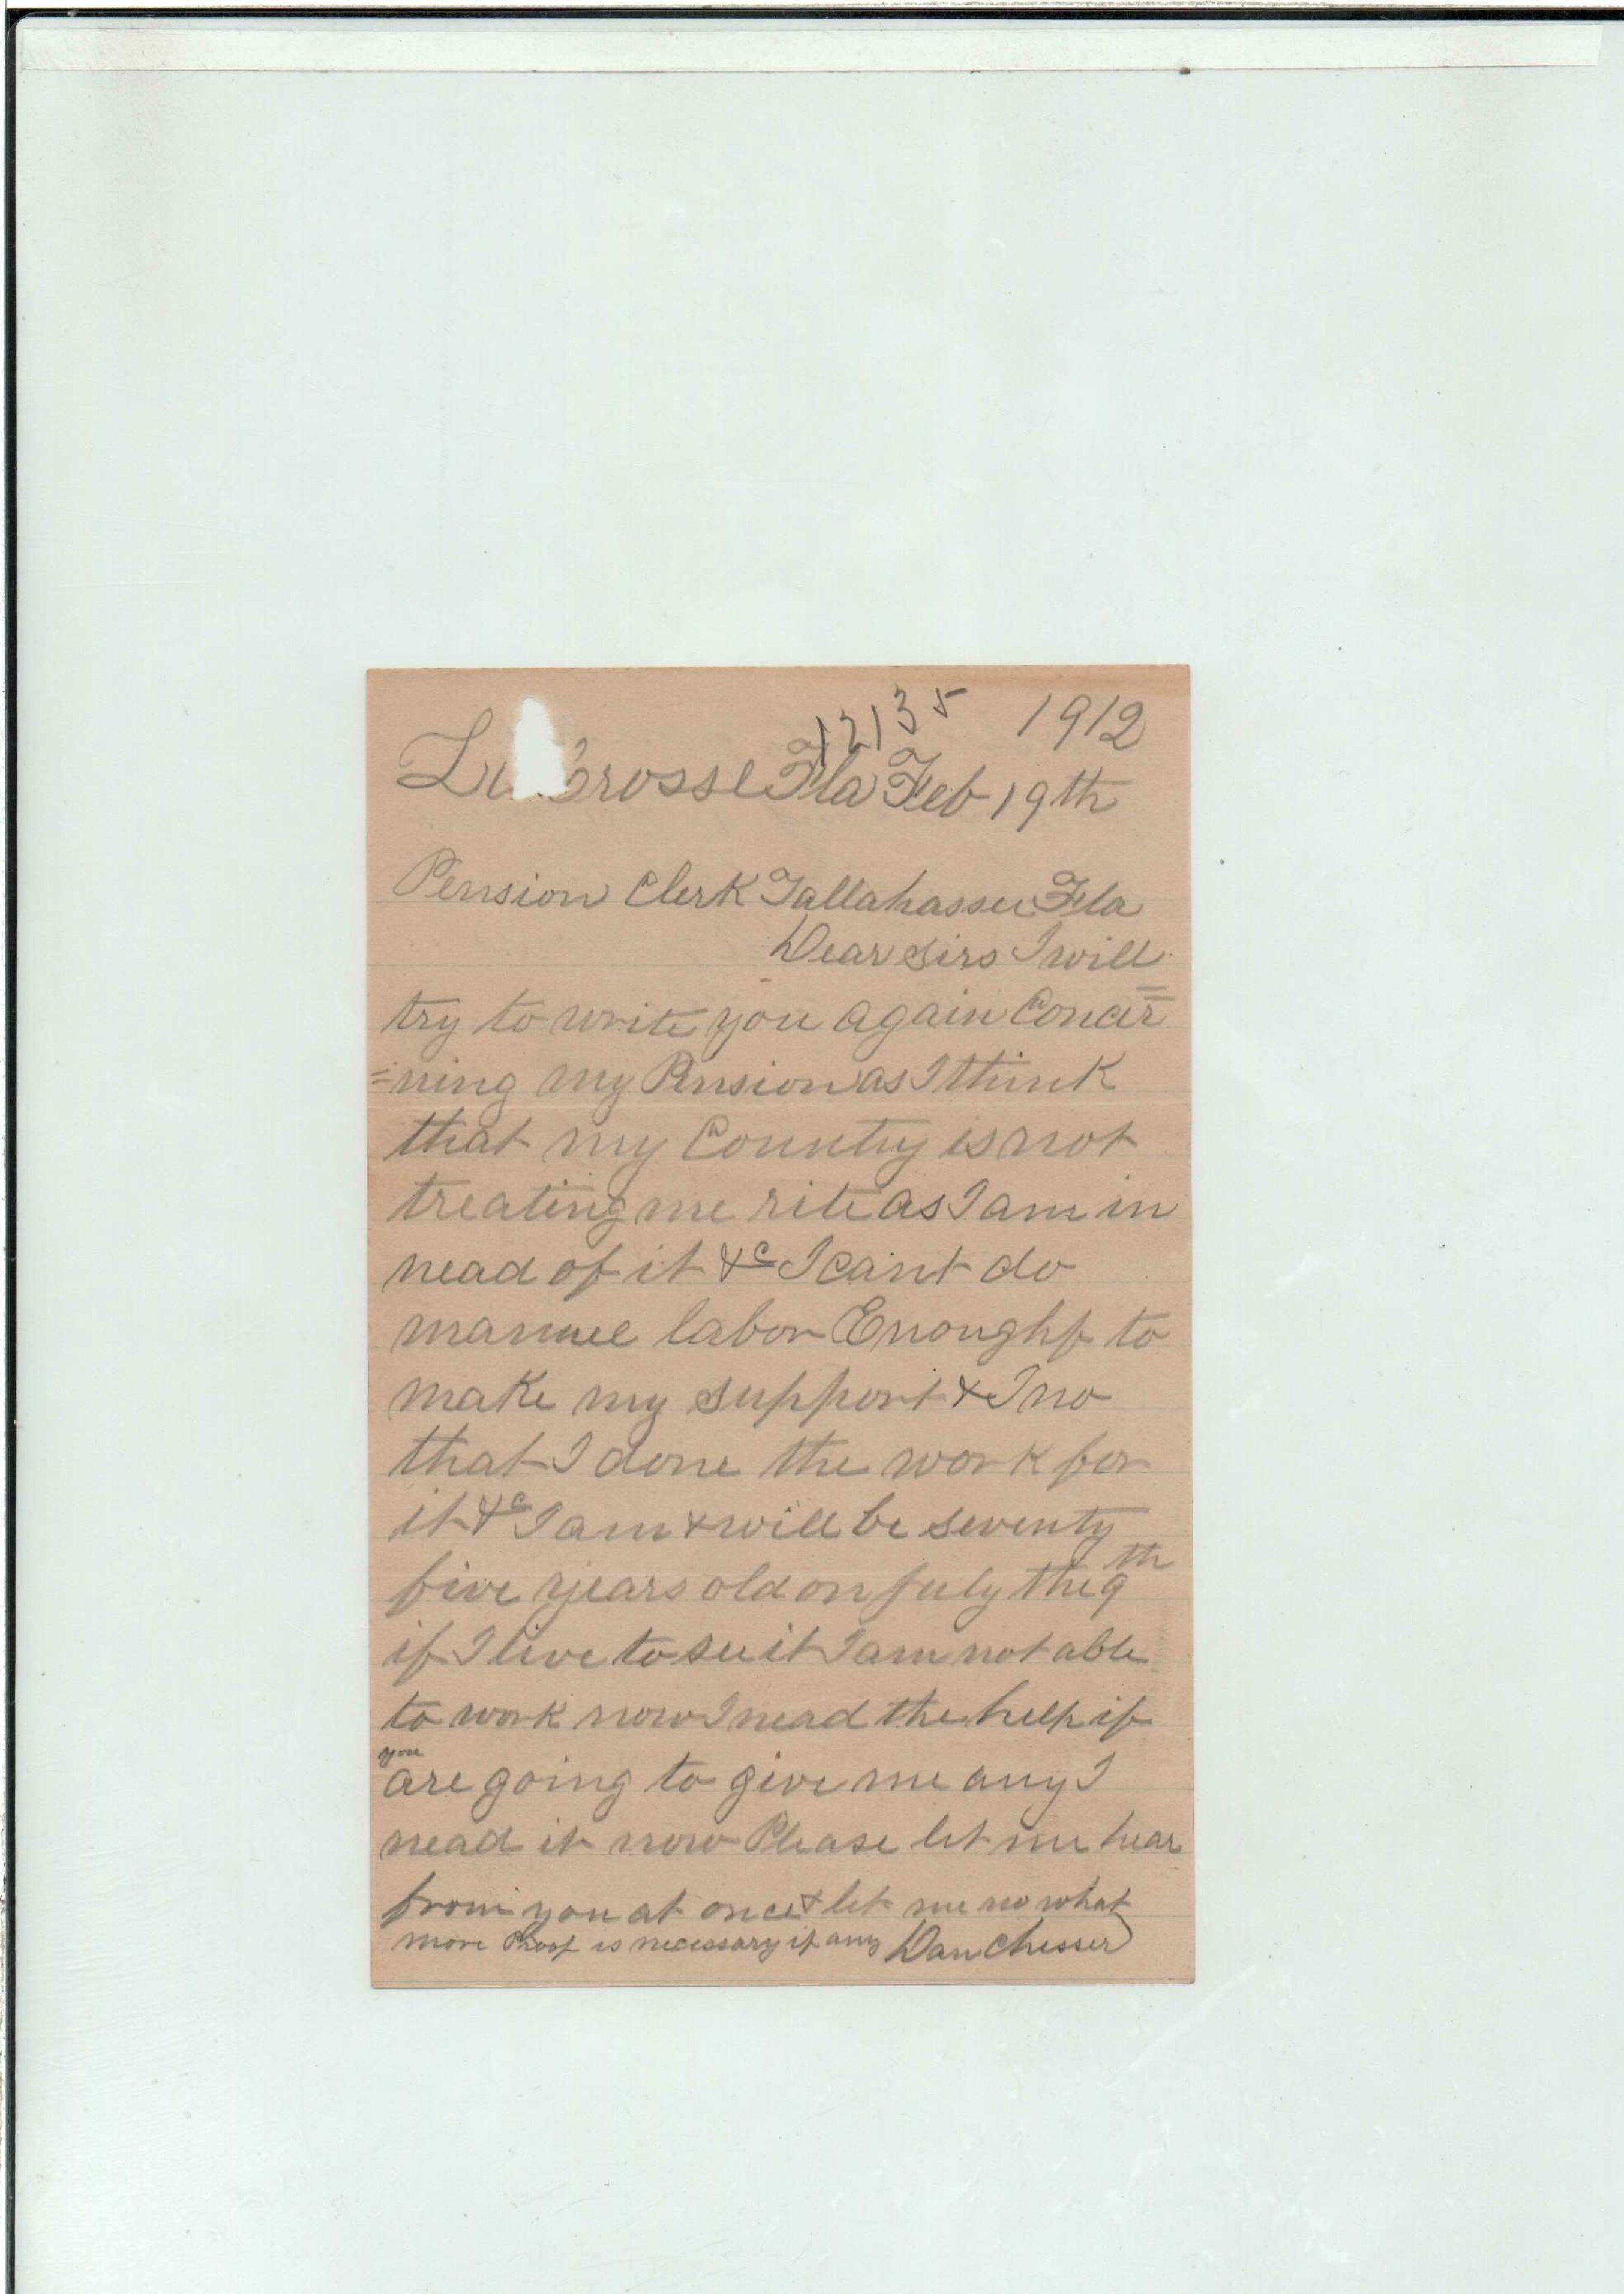 12135 1912
Fla Feb 19th
Pension Clerk Tallahassee Fla
Dear Sirs I will
try to write you again Concer=
=ning my Pension as I think
that my Country is not
treating me rite as I am in
nead of it &c I cant do
manuel labor Enoughf to
make my support & I no
that I done the work for
it &c I am & will be seventy
five years old on July the 9th
if I live to see it I am not able
to work now I nead the help if
you
are going to give me any I
nead it now Please let me hear
from you at once & let me no what
more Proof is necessary if any Dan Chesser